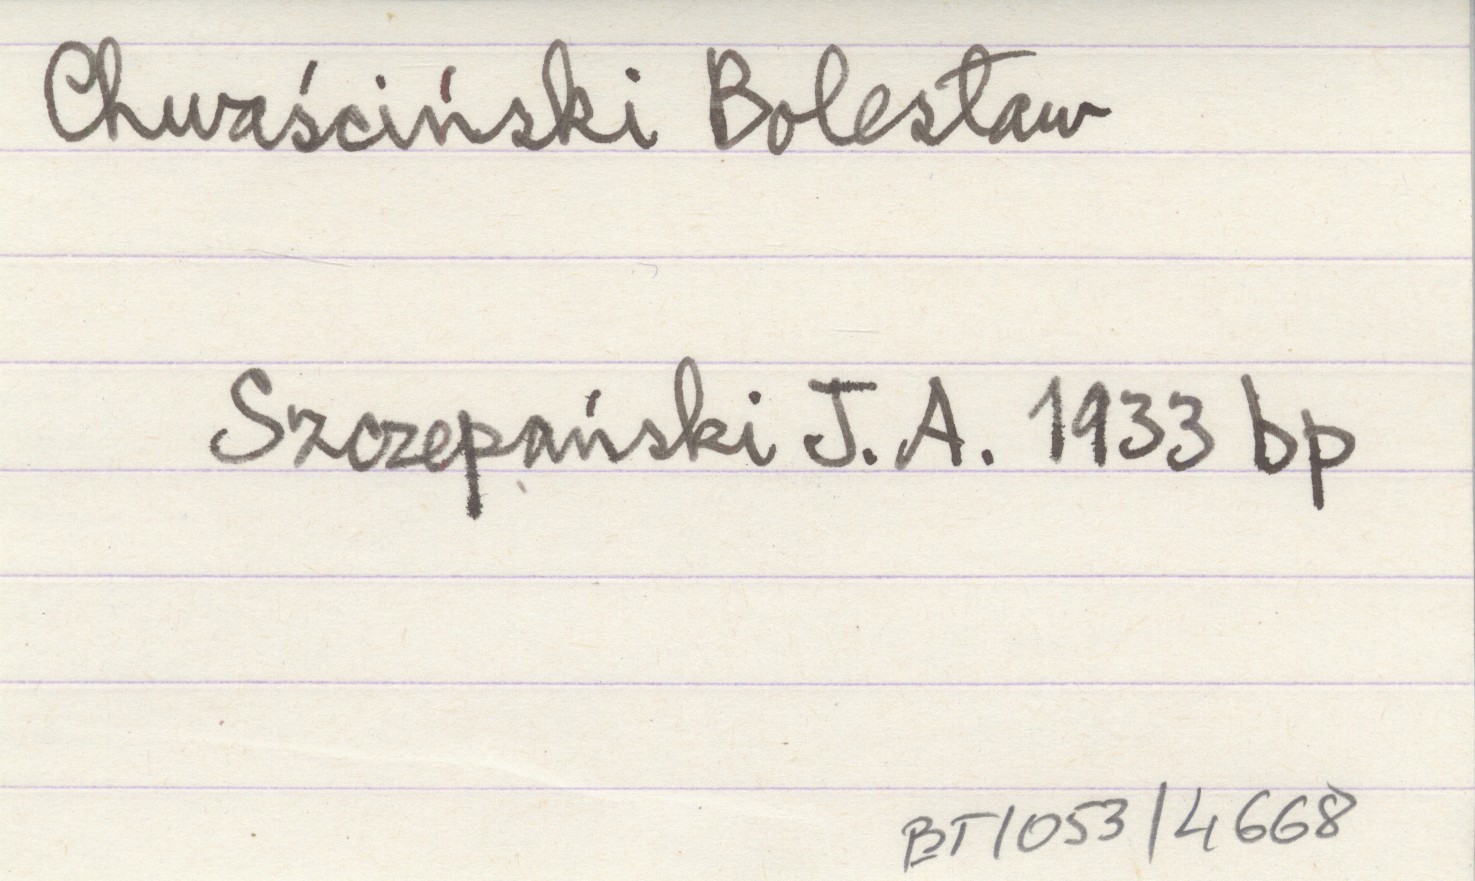 Chwaściński Bolesław
Szczepański J. A. 1933 bp
BT/053/4668